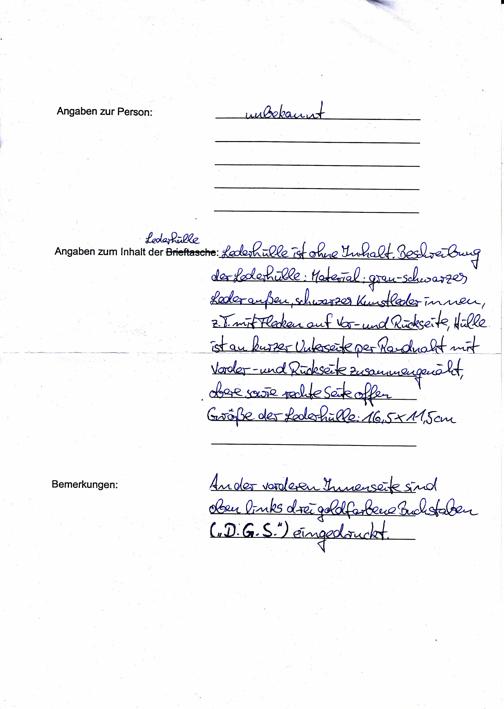 Angaben zur Person: unbekannt
Lederhülle
Angaben zum Inhalt der Brieftasche: Lederhülle ist ohne Inhalt. Beschreibung
der Lederhülle: Material: grau-schwarzes
Leder außen, schwarzes Kunstleder innen,
z.T. mit Flecken auf Vor- und Rückseite, Hülle
ist an kurzer Unterseite per Randnaht mit
Vorder- und Rückseite zusammengenäht,
obere sowie rechte Seite offen
Größe der Lederhülle: 16,5 x 11,5 cm
Bemerkungen: An der vorderen Innenseite sind
oben links drei goldfarbene Buchstaben
(„D.G.S.") eingedruckt.